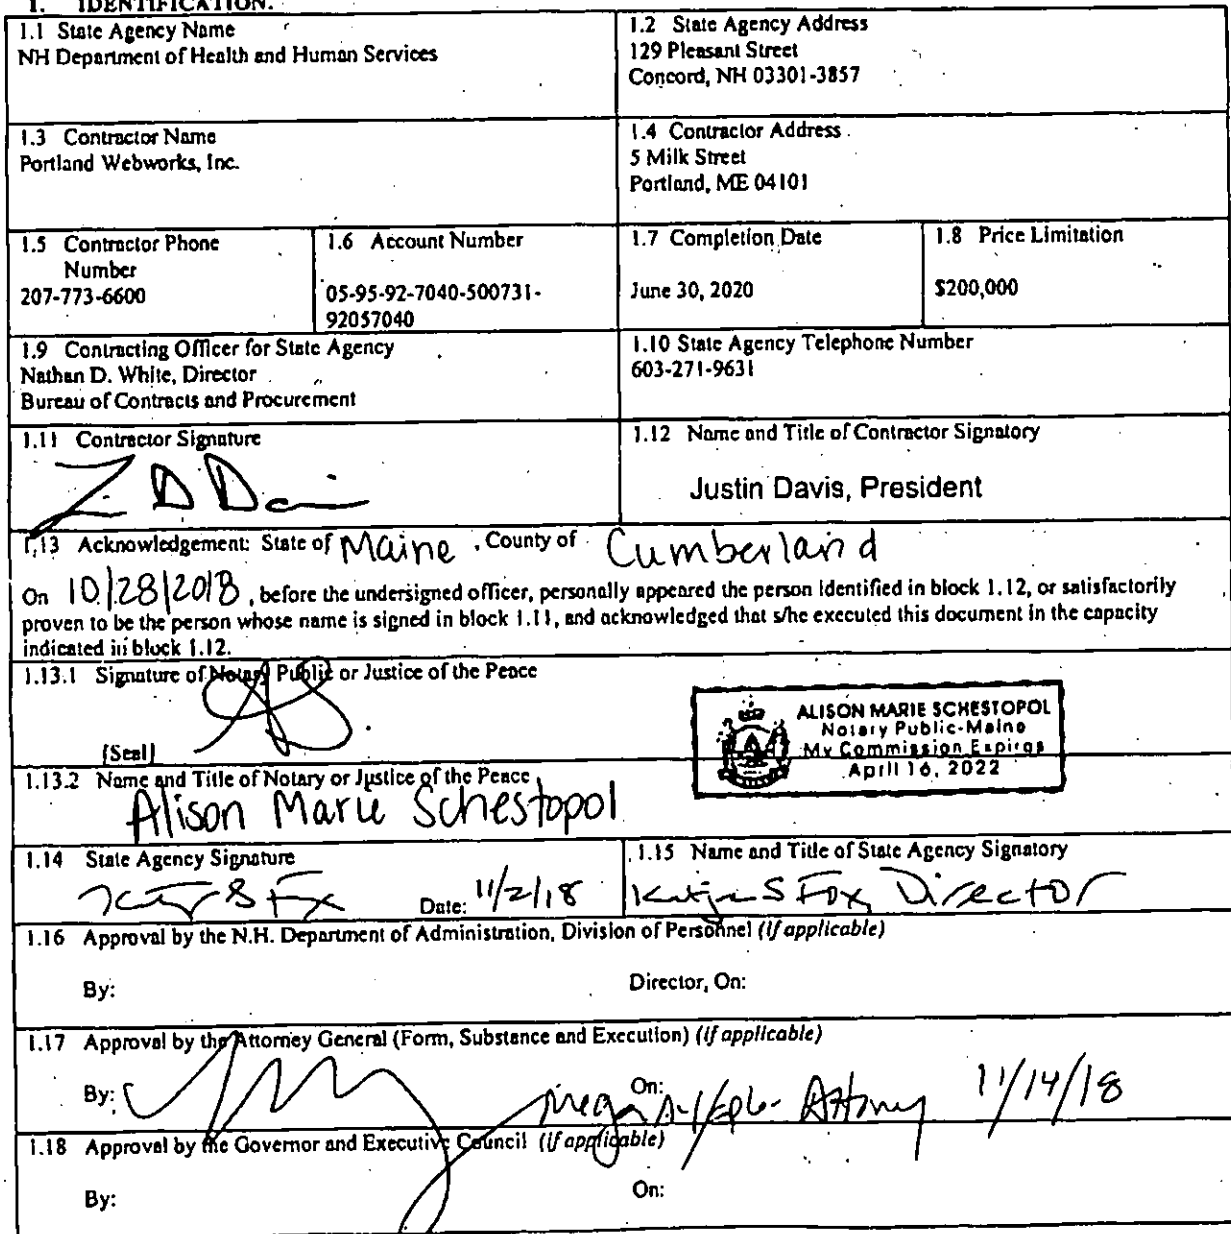 1. IDENTIFICATION.
1.1 State Agency Name
NH Department of Health and Human Services
1.2 State Agency Address
129 Pleasant Street
Concord, NH 03301-3857
1.3 Contractor Name
Portland Webworks, Inc.
1.4 Contractor Address
5 Milk Street
Portland, ME 04101
1.5 Contractor Phone
Number
207-773-6600
1.6 Account Number
05-95-92-7040-500731-
92057040
1.7 Completion Date
June 30, 2020
1.8 Price Limitation
$200,000
1.9 Contracting Officer for State Agency
Nathan D. White, Director
Bureau of Contracts and Procurement
1.10 State Agency Telephone Number
603-271-9631
1.11 Contractor Signature
1.12 Name and Title of Contractor Signatory
Justin Davis, President
1.13 Acknowledgement: State of Maine, County of Cumberland
On 10/28/2018, before the undersigned officer, personally appeared the person identified in block 1.12, or satisfactorily
proven to be the person whose name is signed in block 1.11, and acknowledged that s/he executed this document in the capacity
indicated in block 1.12.
1.13.1 Signature of Notary Public or Justice of the Peace
[Seal]
ALISON MARIE SCHESTOPOL
Notary Public-Maine
My Commission Expires
April 16, 2022
1.13.2 Name and Title of Notary or Justice of the Peace
Alison Marie Schestopol
1.14 State Agency Signature
Date: 11/2/18
1.15 Name and Title of State Agency Signatory
Katja S Fox, Director
1.16 Approval by the N.H. Department of Administration, Division of Personnel (if applicable)
By: Director, On:
1.17 Approval by the Attorney General (Form, Substance and Execution) (if applicable)
By: On: Attorney 11/14/18
1.18 Approval by the Governor and Executive Council (if applicable)
By: On: